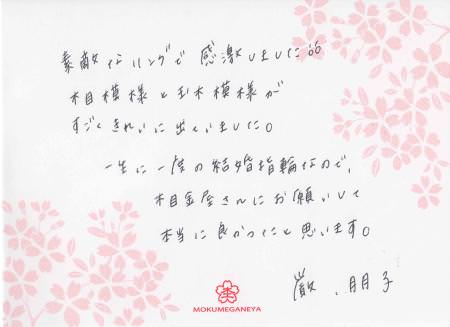 素敵なリングで感激しました!!
木目模様と玉木模様が
すごくきれいに出ていました。
一生に一度の結婚指輪なので、
木目金屋さんにお願いして
本当に良かったと思います。
、朋子
MOKUMEGANEYA